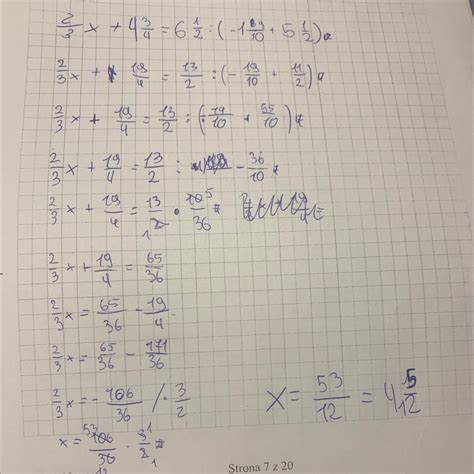 2/3 x + 4 3/4 = 6 1/2 : (-1 9/10 + 5 1/2)
2/3 x + 19/4 = 13/2 : (-19/10 + 11/2)
2/3 x + 19/4 = 13/2 : (-19/10 + 55/10)
2/3 x + 19/4 = 13/2 : - 36/10
2/3 x + 19/4 = 13/2 1 · 10 5/36
2/3 x + 19/4 = 65/36
2/3 x = 65/36 - 19/4
2/3 x = 65/36 - 171/36
2/3 x = - 106/36 / · 3/2
x = 53 106/36 12 · 3 1/2 1 =
x = 53/12 = 4 5/12
Strona 7 z 20